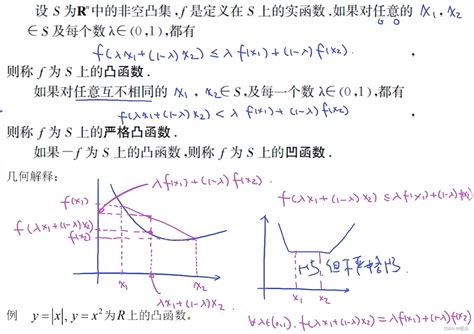 设 S 为 Rⁿ 中的非空凸集, f 是定义在 S 上的实函数. 如果对任意的 x₁, x₂
∈ S 及每个数 λ∈(0,1), 都有
f(λx₁+(1-λ)x₂) ≤ λf(x₁)+(1-λ)f(x₂) ,
则称 f 为 S 上的凸函数.
如果对任意互不相同的 x₁, x₂∈S, 及每一个数 λ∈(0,1), 都有
f(λx₁+(1-λ)x₂) < λf(x₁)+(1-λ)f(x₂) ,
则称 f 为 S 上的严格凸函数.
如果 -f 为 S 上的凸函数, 则称 f 为 S 上的凹函数.
几何解释:
λf(x₁)+(1-λ)f(x₂).
f(x₁)
f(λx₁+(1-λ)x₂)
f(x₂)
x₁
x₂
λx₁+(1-λ)x₂
f(λx₁+(1-λ)x₂) ≤ λf(x₁)+(1-λ)f(x₂)
凸, 但不严格凸
x₁ x₂
∀λ∈(0,1), f(λx₁+(1-λ)x₂) = λf(x₁)+(1-λ)f(x₂)
例 y=|x|, y=x² 为 R 上的凸函数。